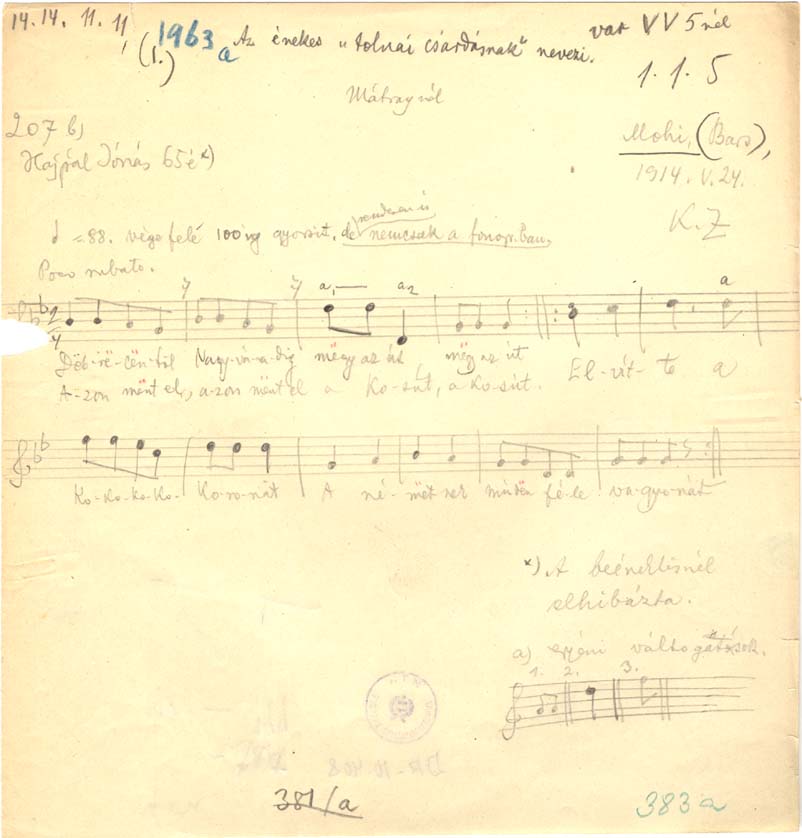 14. 14. 11. 11
(1.)
1963 a
Az énekes „tolnai csárdásnak" nevezi.
var VV 5 nél
1. 1. 5
207 b)
Mohi, (Bars),
1914. V. 24.
Hajpál Jónás 65 é x)
K. Z
= 88. vége felé 100 ig gyorsít, de rendesen is nemcsak a fonogr.ban.
Poco rubato.
a 1 a 2 a
Döb-rë-cën-töl Nagy-vá-ra-dig mëgy az út, mëgy az út
A-zon mënt el, a-zon mënt el a Ko-sút, a Ko-sút. El-vit-te a
Ko-ko-ko-ko- Ko-ro-nát A né-mët-nek mindën fé-le va-gyo-nát
x) A beéneklésnél
elhibázta.
a) egyéni változatok.
1. 2. 3.
DR-10.408
381/a
383 a